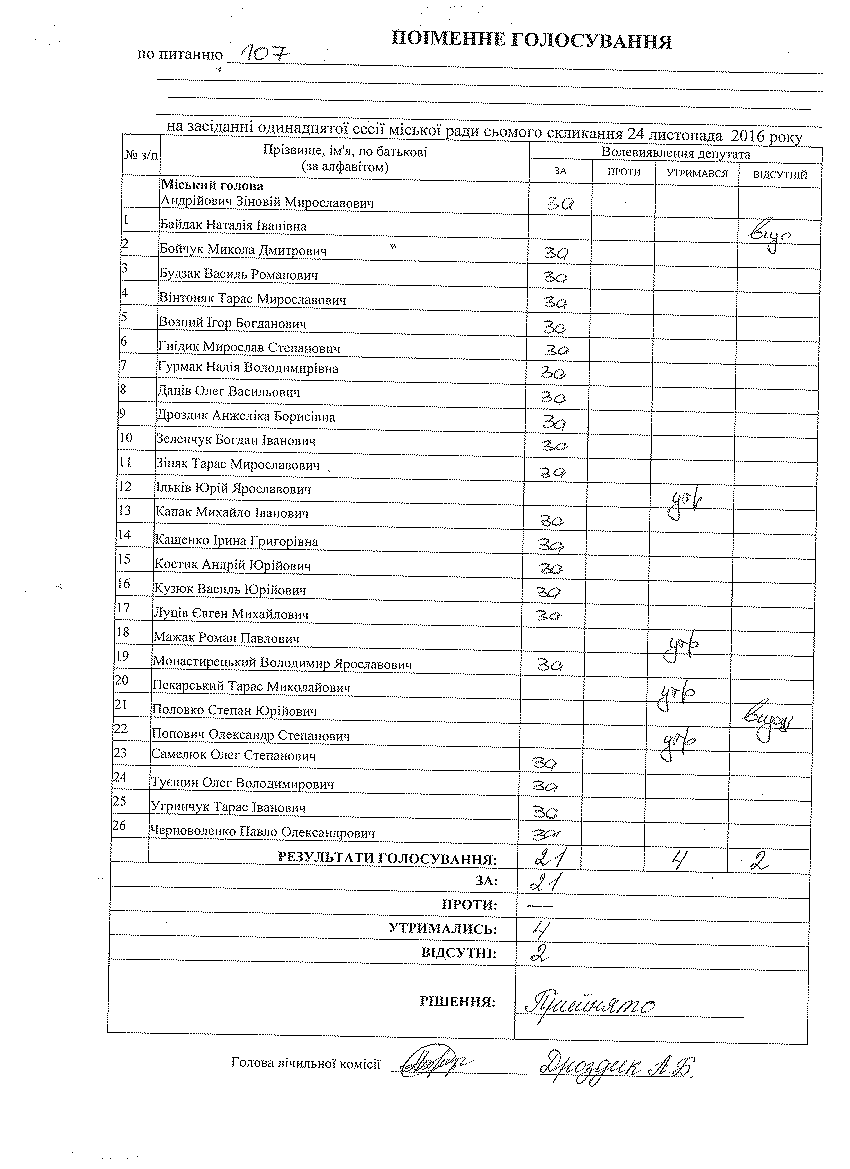 ПОІМЕННЕ ГОЛОСУВАННЯ
по питанню 107
на засіданні одинадцятої сесії міської ради сьомого скликання 24 листопада 2016 року
№ з/п Прізвище, ім'я, по батькові (за алфавітом) Волевиявлення депутата
ЗА ПРОТИ УТРИМАВСЯ ВІДСУТНІЙ
Міський голова
Андрійович Зіновій Мирославович за
1 Байдак Наталія Іванівна відс
2 Бойчук Микола Дмитрович за
3 Будзак Василь Романович за
4 Вінтоняк Тарас Мирославович за
5 Возний Ігор Богданович за
6 Гнідик Мирослав Степанович за
7 Гурмак Надія Володимирівна за
8 Даців Олег Васильович за
9 Дроздик Анжеліка Борисівна за
10 Зеленчук Богдан Іванович за
11 Зіняк Тарас Мирославович за
12 Ільків Юрій Ярославович утр
13 Капак Михайло Іванович за
14 Кащенко Ірина Григорівна за
15 Костик Андрій Юрійович за
16 Кузюк Василь Юрійович за
17 Луців Євген Михайлович за
18 Мажак Роман Павлович утр
19 Монастирецький Володимир Ярославович за
20 Пекарський Тарас Миколайович утр
21 Половко Степан Юрійович
22 Попович Олександр Степанович утр
23 Самелюк Олег Степанович за
24 Туєшин Олег Володимирович за
25 Угринчук Тарас Іванович за
26 Черноволенко Павло Олександрович за
РЕЗУЛЬТАТИ ГОЛОСУВАННЯ: 21 4 2
ЗА: 21
ПРОТИ: —
УТРИМАЛИСЬ: 4
ВІДСУТНІ: 2
РІШЕННЯ: Прийнято
Голова лічильної комісії Дроздик А.Б.